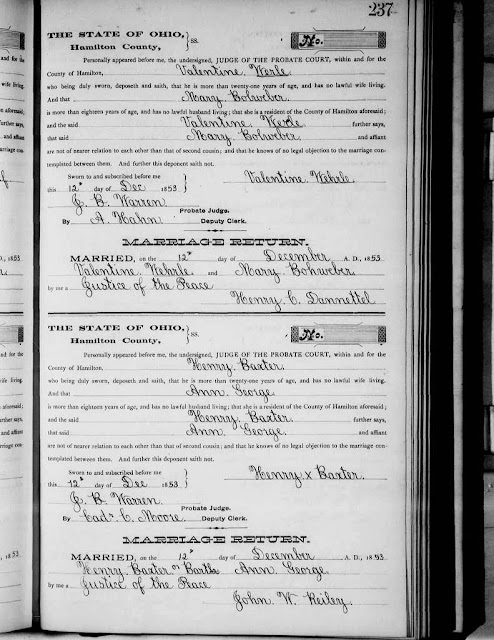 237
THE STATE OF OHIO, } ss. No.
Hamilton County,
Personally appeared before me, the undersigned, JUDGE OF THE PROBATE COURT, within and for the
County of Hamilton, Valentine Werle
who being duly sworn, deposeth and saith, that he is more than twenty-one years of age, and has no lawful wife living.
And that Mary Bohweber
is more than eighteen years of age, and has no lawful husband living; that she is a resident of the County of Hamilton aforesaid;
and the said Valentine Werle further says,
that said Mary Bohweber and affiant
are not of nearer relation to each other than that of second cousin; and that he knows of no legal objection to the marriage con-
templated between them. And further this deponent saith not.
Sworn to and subscribed before me
this 12" day of Dec 1853 } Valentine Wehrle
J. B. Warren
Probate Judge.
By A. Hahn Deputy Clerk.
MARRIAGE RETURN.
MARRIED, on the 12" day of December A. D., 1853
Valentine Wehrle and Mary Bohweber
by me a Justice of the Peace
Henry C. Dannettel
THE STATE OF OHIO, } ss. No.
Hamilton County,
Personally appeared before me, the undersigned, JUDGE OF THE PROBATE COURT, within and for the
County of Hamilton, Henry Baxter
who being duly sworn, deposeth and saith, that he is more than twenty-one years of age, and has no lawful wife living.
And that Ann George
is more than eighteen years of age, and has no lawful husband living; that she is a resident of the County of Hamilton aforesaid;
and the said Henry Baxter further says,
that said Ann George and affiant
are not of nearer relation to each other than that of second cousin; and that he knows of no legal objection to the marriage con-
templated between them. And further this deponent saith not.
Sworn to and subscribed before me
this 12" day of Dec 1853 } Henry x Baxter
J. B. Warren
Probate Judge.
By Cads C. Moore Deputy Clerk.
MARRIAGE RETURN.
MARRIED, on the 12" day of December A. D., 1853
Henry Baxter or Ann George
by me a Justice of the Peace
John W. Reiley